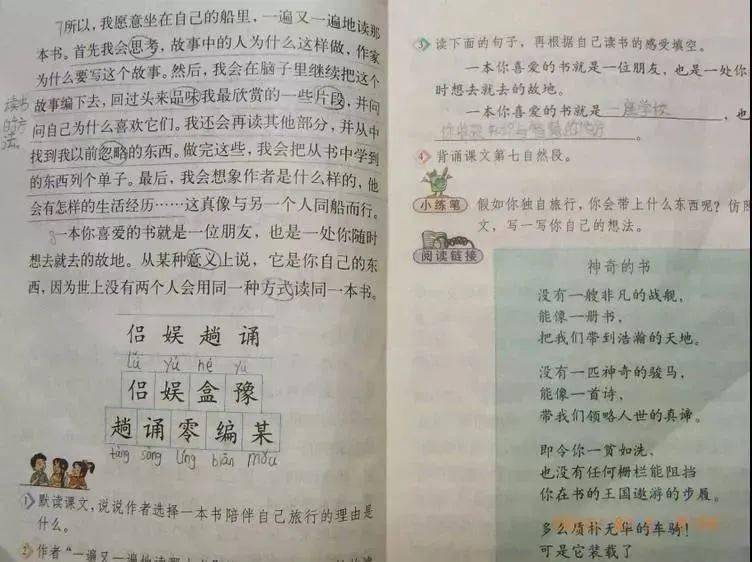 7所以,我愿意坐在自己的船里,一遍又一遍地读那
本书。首先我会思考,故事中的人为什么这样做,作家
为什么要写这个故事。然后,我会在脑子里继续把这个
故事编下去,回过头来品味我最欣赏的一些片段,并问
问自己为什么喜欢它们。我还会再读其他部分,并从中
找到我以前忽略的东西。做完这些,我会把从书中学到
的东西列个单子。最后,我会想象作者是什么样的,他
会有怎样的生活经历……这真像与另一个人同船而行。
读书
的方
法
8一本你喜爱的书就是一位朋友,也是一处你随时
想去就去的故地。从某种意义上说,它是你自己的东
西,因为世上没有两个人会用同一种方式读同一本书。
侣 娱 趟 诵
lǚ yú hé yù
侣 娱 盒 豫
趟 诵 零 编 某
tàng sòng líng biān mǒu
1 默读课文,说说作者选择一本书陪伴自己旅行的理由是
什么。
2 作者“一遍又一遍地读那
3 读下面的句子,再根据自己读书的感受填空。
一本你喜爱的书就是一位朋友,也是一处你
时想去就去的故地。
一本你喜爱的书就是 一座学校 ,也
的地方 。
4 背诵课文第七自然段。
小练笔 假如你独自旅行,你会带上什么东西呢?仿照
文,写一写你自己的想法。
阅读链接
神奇的书
没有一艘非凡的战舰,
能像一册书,
把我们带到浩瀚的天地。
没有一匹神奇的骏马,
能像一首诗,
带我们领略人世的真谛。
即令你一贫如洗,
也没有任何栅栏能阻挡
你在书的王国遨游的步履。
多么质朴无华的车骑!
可是它装载了